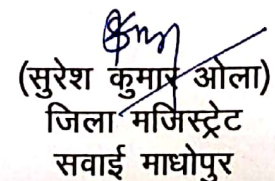 (सुरेश कुमार ओला)
जिला मजिस्ट्रेट
सवाई माधोपुर